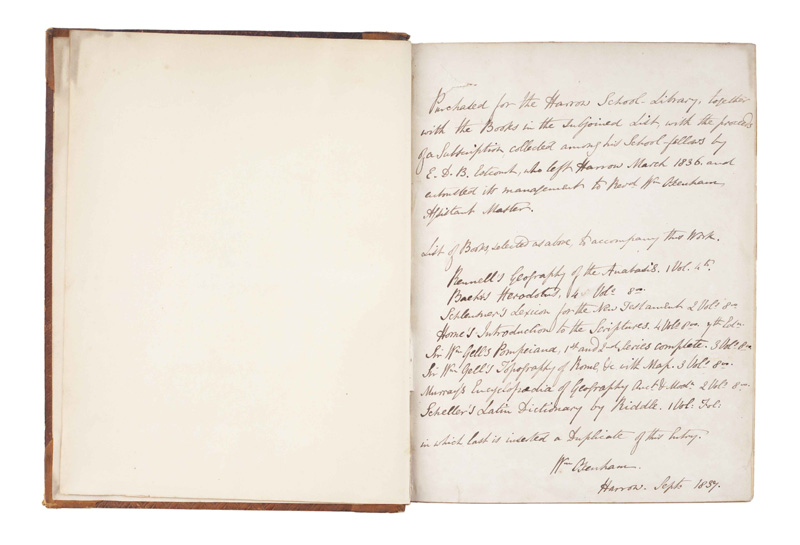 Purchased for the Harrow School-Library, together
with the Books in the Subjoined List, with the proceeds
of a Subscription collected among his School-fellows by
E. D. B. Estcourt, who left Harrow March 1836. and
entrusted its management to Revd Wm Oxenham,
Assistant Master.
List of Books selected as above, to accompany this Work.
Rennell's Geography of the Anabasis. 1 Vol. 4to.
Baehr's Herodotus. 4 Vols 8vo
Schleusner's Lexicon for the New Testament 2 Vols 8vo
Horne's Introduction to the Scriptures. 4 Vols 8vo 7th Edn.
Sir Wm Gell's Pompeiana, 1st and 2nd Series complete. 3 Vols 8vo
Sir Wm Gell's Topography of Rome, &c with Map. 3 Vols 8vo.
Murray's Encyclopædia of Geography Anct & Modn. 2 Vols 8vo
Scheller's Latin Dictionary by Riddle. 1 Vol: Fol:
in which last is inserted a Duplicate of this Entry.
Wm Oxenham.
Harrow. Septr 1837.